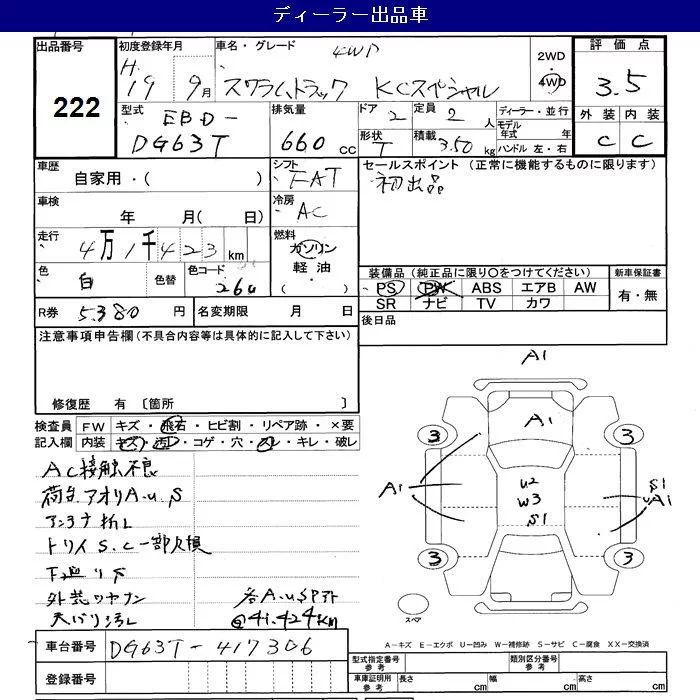 ディーラー出品車
出品番号
222
初度登録年月
H
19 9月
車名・グレード
4WD
スズキ トラック KCスペシャル
2WD
4WD
評価点
3.5
外装 内装
C C
型式
EBD-
DG63T
排気量
660 cc
ドア 2
定員 2 人
形状 T
積載 350 kg
ディーラー・並行
モデル年式 年
ハンドル 左・右
車歴
自家用・( )
シフト
FAT
セールスポイント (正常に機能するものに限ります)
初出品
車検
年 月( 日)
冷房
AC
走行
4万1千423km
燃料
ガソリン
軽油・
( )
色
白
色替
色コード
26U
装備品(純正品に限り○をつけてください)
PS PW ABS エアB AW
SR ナビ TV カワ
新車保証書
有・無
R券 5380円
名変期限 月 日
後日品
注意事項申告欄(不具合内容等は具体的に記入して下さい)
修復歴 有 〔箇所 〕
検査員記入欄
FW キズ・飛石・ヒビ割・リペア跡・×要
内装 キズ・汚レ・コゲ・穴・スレ・キレ・破レ
AC接触不良
荷台アオリA.U.S
アンテナ折レ
トリイS.C一部欠損
下廻リS
外装ツヤナシ
各A.U.S
@41.424km
A1
A1
3 3
A1
U2
W3
S1
S1
A1
3 3
スペア
A-キズ E-エクボ U-凹み W-補修跡 S-サビ C-腐食 XX-交換済
車台番号 DG63T-417306
登録番号
型式指定番号参考
類別区分番号参考
車庫証明用参考
長さ cm 幅 cm 高さ cm